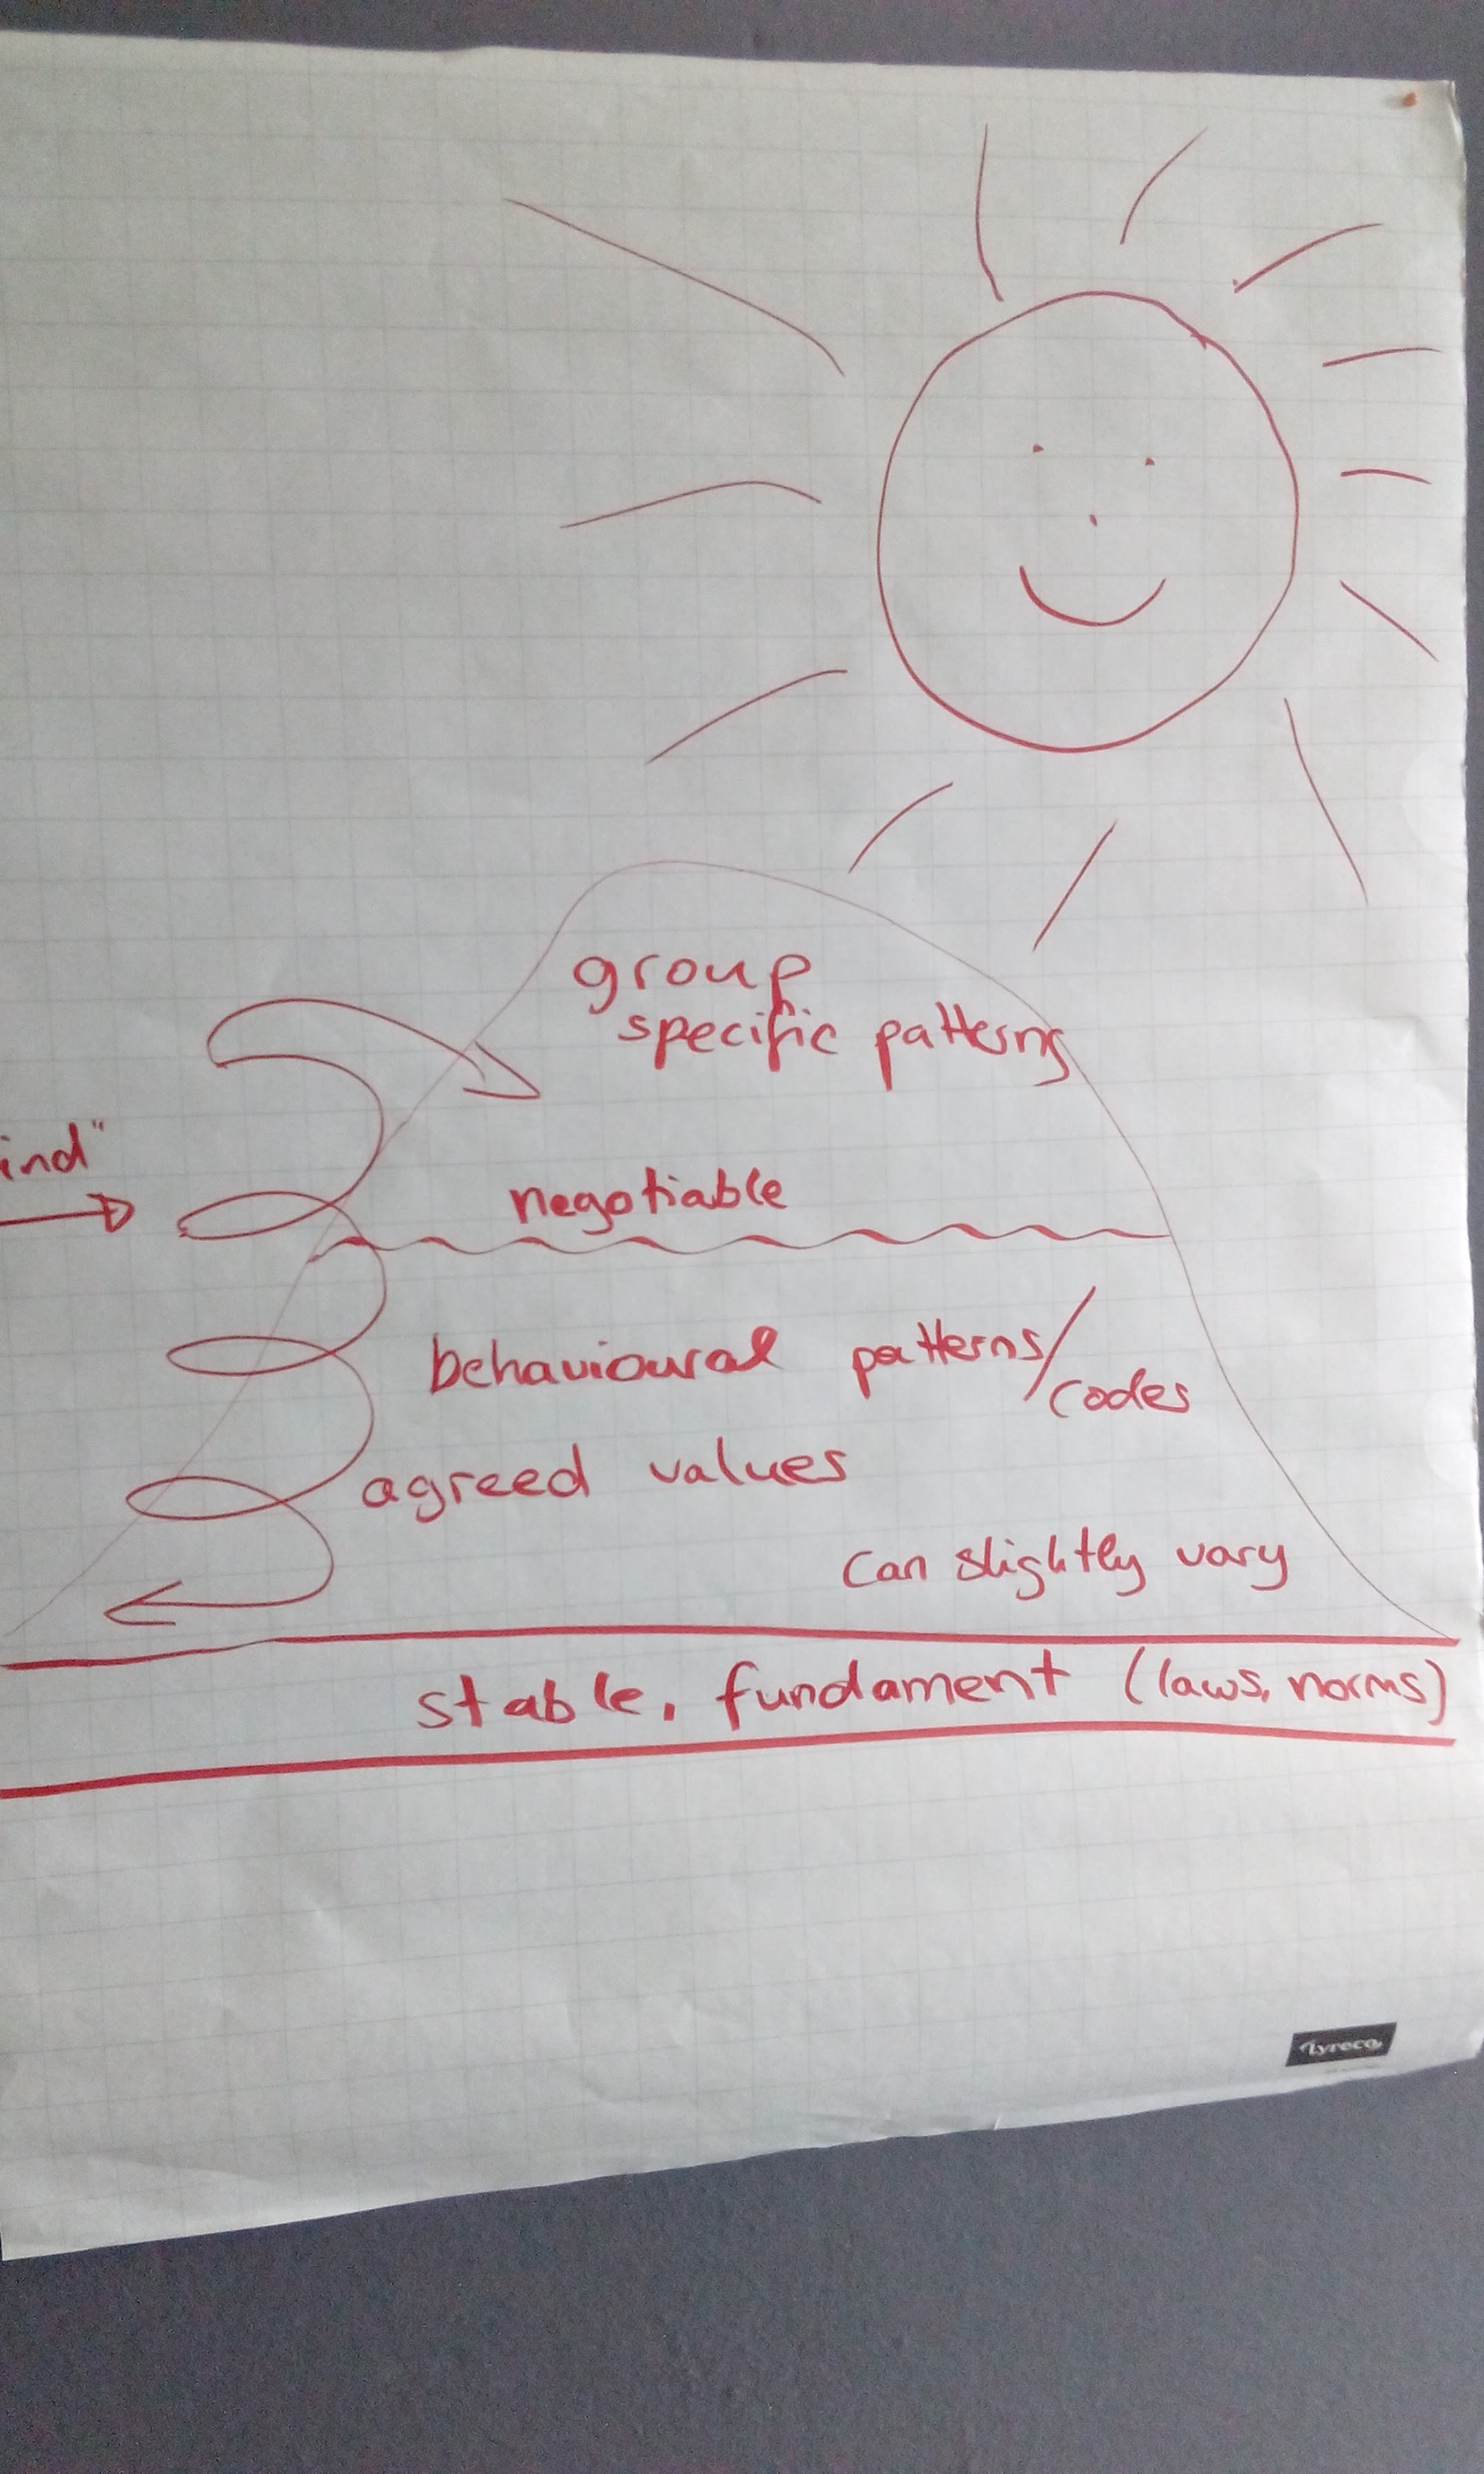 group
specific patterns
ind"
negotiable
behavioural patterns/
codes
agreed values
can slightly vary
stable, fundament (laws, norms)
lyreco